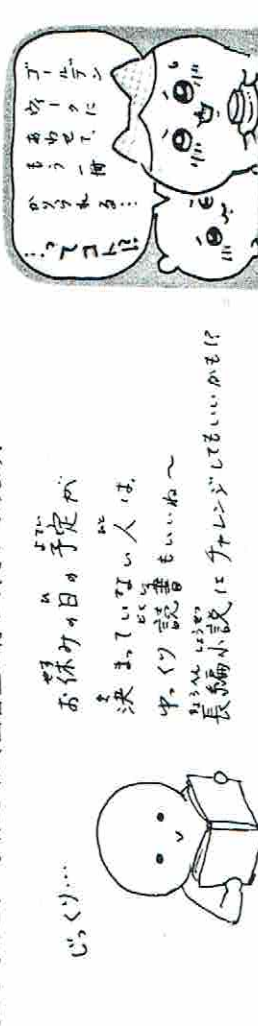 じっくり…
お休みの日の予定が
決まっていない人は、
ゆっくり読書もいいね〜
長編小説にチャレンジしてもいいかも!?
ゴールデン
ウィークに
あわせて、
もう一冊
かりられる…